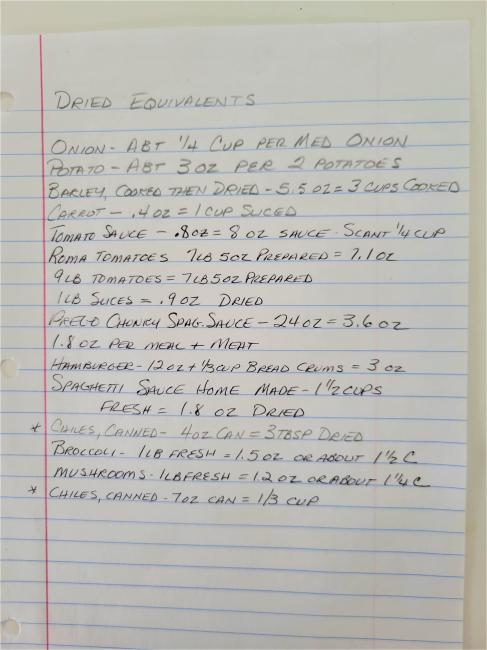 DRIED EQUIVALENTS
ONION - ABT 1/4 CUP PER MED ONION
POTATO - ABT 3 OZ PER 2 POTATOES
BARLEY, COOKED THEN DRIED - 5.5 OZ = 3 CUPS COOKED
CARROT - .4 OZ = 1 CUP SLICED
TOMATO SAUCE - .8OZ = 8 OZ SAUCE - SCANT 1/4 CUP
ROMA TOMATOES 7LB 5OZ PREPARED = 7.1 OZ
9 LB TOMATOES = 7LB 5OZ PREPARED
1 LB SLICES = .9 OZ DRIED
PREGO CHUNKY SPAG. SAUCE - 24 OZ = 3.6 OZ
1.8 OZ PER MEAL + MEAT
HAMBURGER - 12 OZ + 1/3 CUP BREAD CRUMS = 3 OZ
SPAGHETTI SAUCE HOME MADE - 1 1/2 CUPS
FRESH = 1.8 OZ DRIED
* CHILES, CANNED - 4OZ CAN = 3 TBSP DRIED
BROCCOLI - 1LB FRESH = 1.5 OZ OR ABOUT 1 1/2 C
MUSHROOMS - 1LB FRESH = 1.2 OZ OR ABOUT 1 1/4 C
* CHILES, CANNED - 7OZ CAN = 1/3 CUP